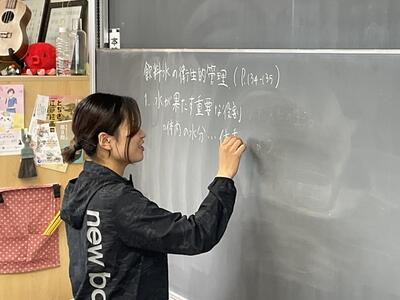 本
飲料水の衛生的管理 (P.134-135)
1. 水が果たす重要な役割
○体内の水分…体重
new ba